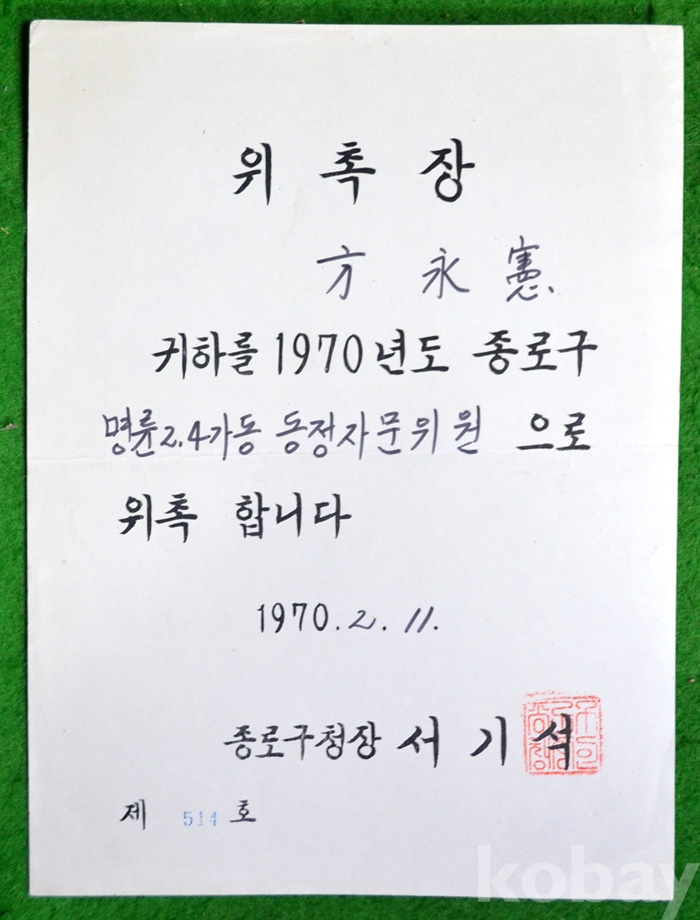 위 촉 장
方 永 憲
귀하를 1970년도 종로구
명륜2.4가동 동정자문위원 으로
위촉 합니다
1970. 2. 11.
종로구청장 서 기 석
제 514 호
kobay